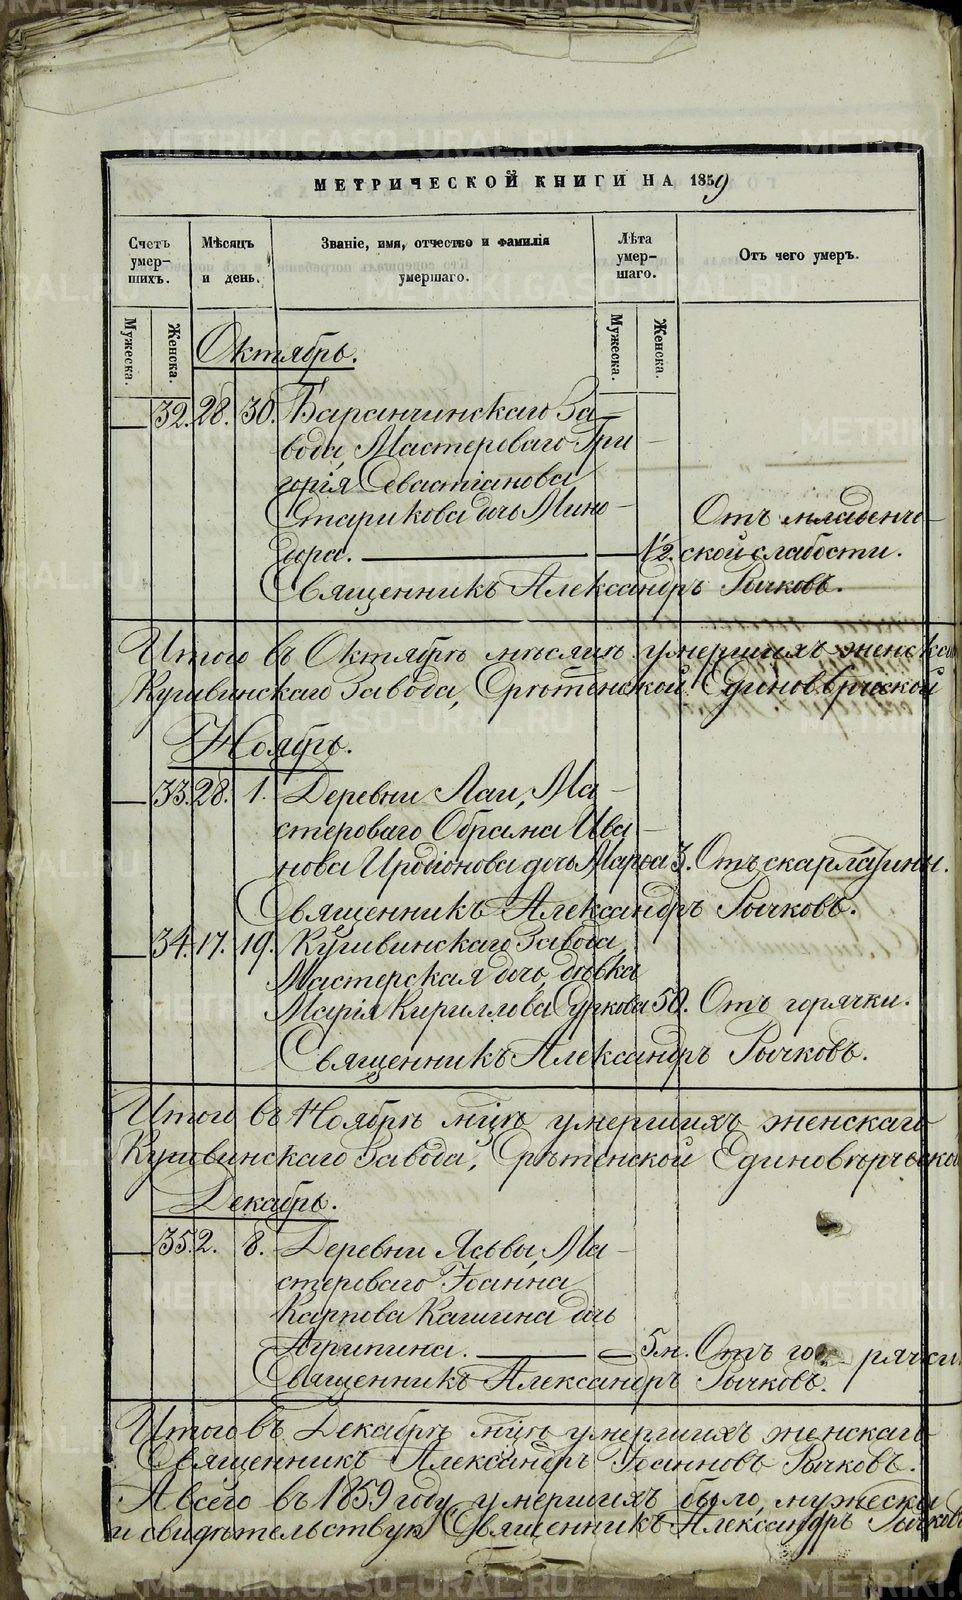 МЕТРИЧЕСКОЙ КНИГИ НА 1859
Счетъ умер-шихъ.
Мѣсяцъ и день.
Званіе, имя, отчество и фамилія умершаго.
Лѣта умер-шаго.
Отъ чего умеръ.
Мужеска.
Женска.
Мужеска.
Женска.
Октябрь.
32. 28. 30. Баранчинскаго За-
вода, Мастероваго Гри-
горія Севастіанова
Старикова дочь Мино-
дора. 1/2.
Отъ младенче-
ской слабости.
Священникъ Александръ Рычковъ.
Итого въ Октябрѣ мѣсяцѣ умершихъ женска
Кушвинскаго Завода, Срѣтенской Единоверческой
Ноябрь.
33. 28. 1. Деревни Лаи, Ма-
стероваго Обрама Ива-
нова Иродіонова дочь Марья 3. Отъ скарлатины.
Священникъ Александръ Рычковъ.
34. 17. 19. Кушвинскаго Завода,
Мастерская дочь, дѣвка
Марія Кириллова Суркова 50. Отъ горячки.
Священникъ Александръ Рычковъ.
Итого въ Ноябрѣ мцѣ умершихъ женскаго
Кушвинскаго Завода, Срѣтенской Единовѣрческой
Декабрь.
35. 2. 8. Деревни Ясьвы, Ма-
стероваго Іоанна
Карпова Кашина дочь
Агрипина. 5.н. Отъ горячки
Священникъ Александръ Рычковъ.
Итого въ Декабрѣ мцѣ умершихъ женскаго
Священникъ Александръ Іоанновъ Рычковъ.
А всего въ 1859 году умершихъ было, мужеска
и свидѣтельствую Священникъ Александръ Рычковъ
METRIKI.GASO-URAL.RU